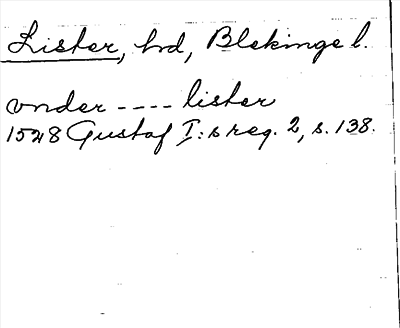 Lister, hd, Blekinge l.
vnder ---- lister
1528 Gustaf I:s reg. 2, s. 138.